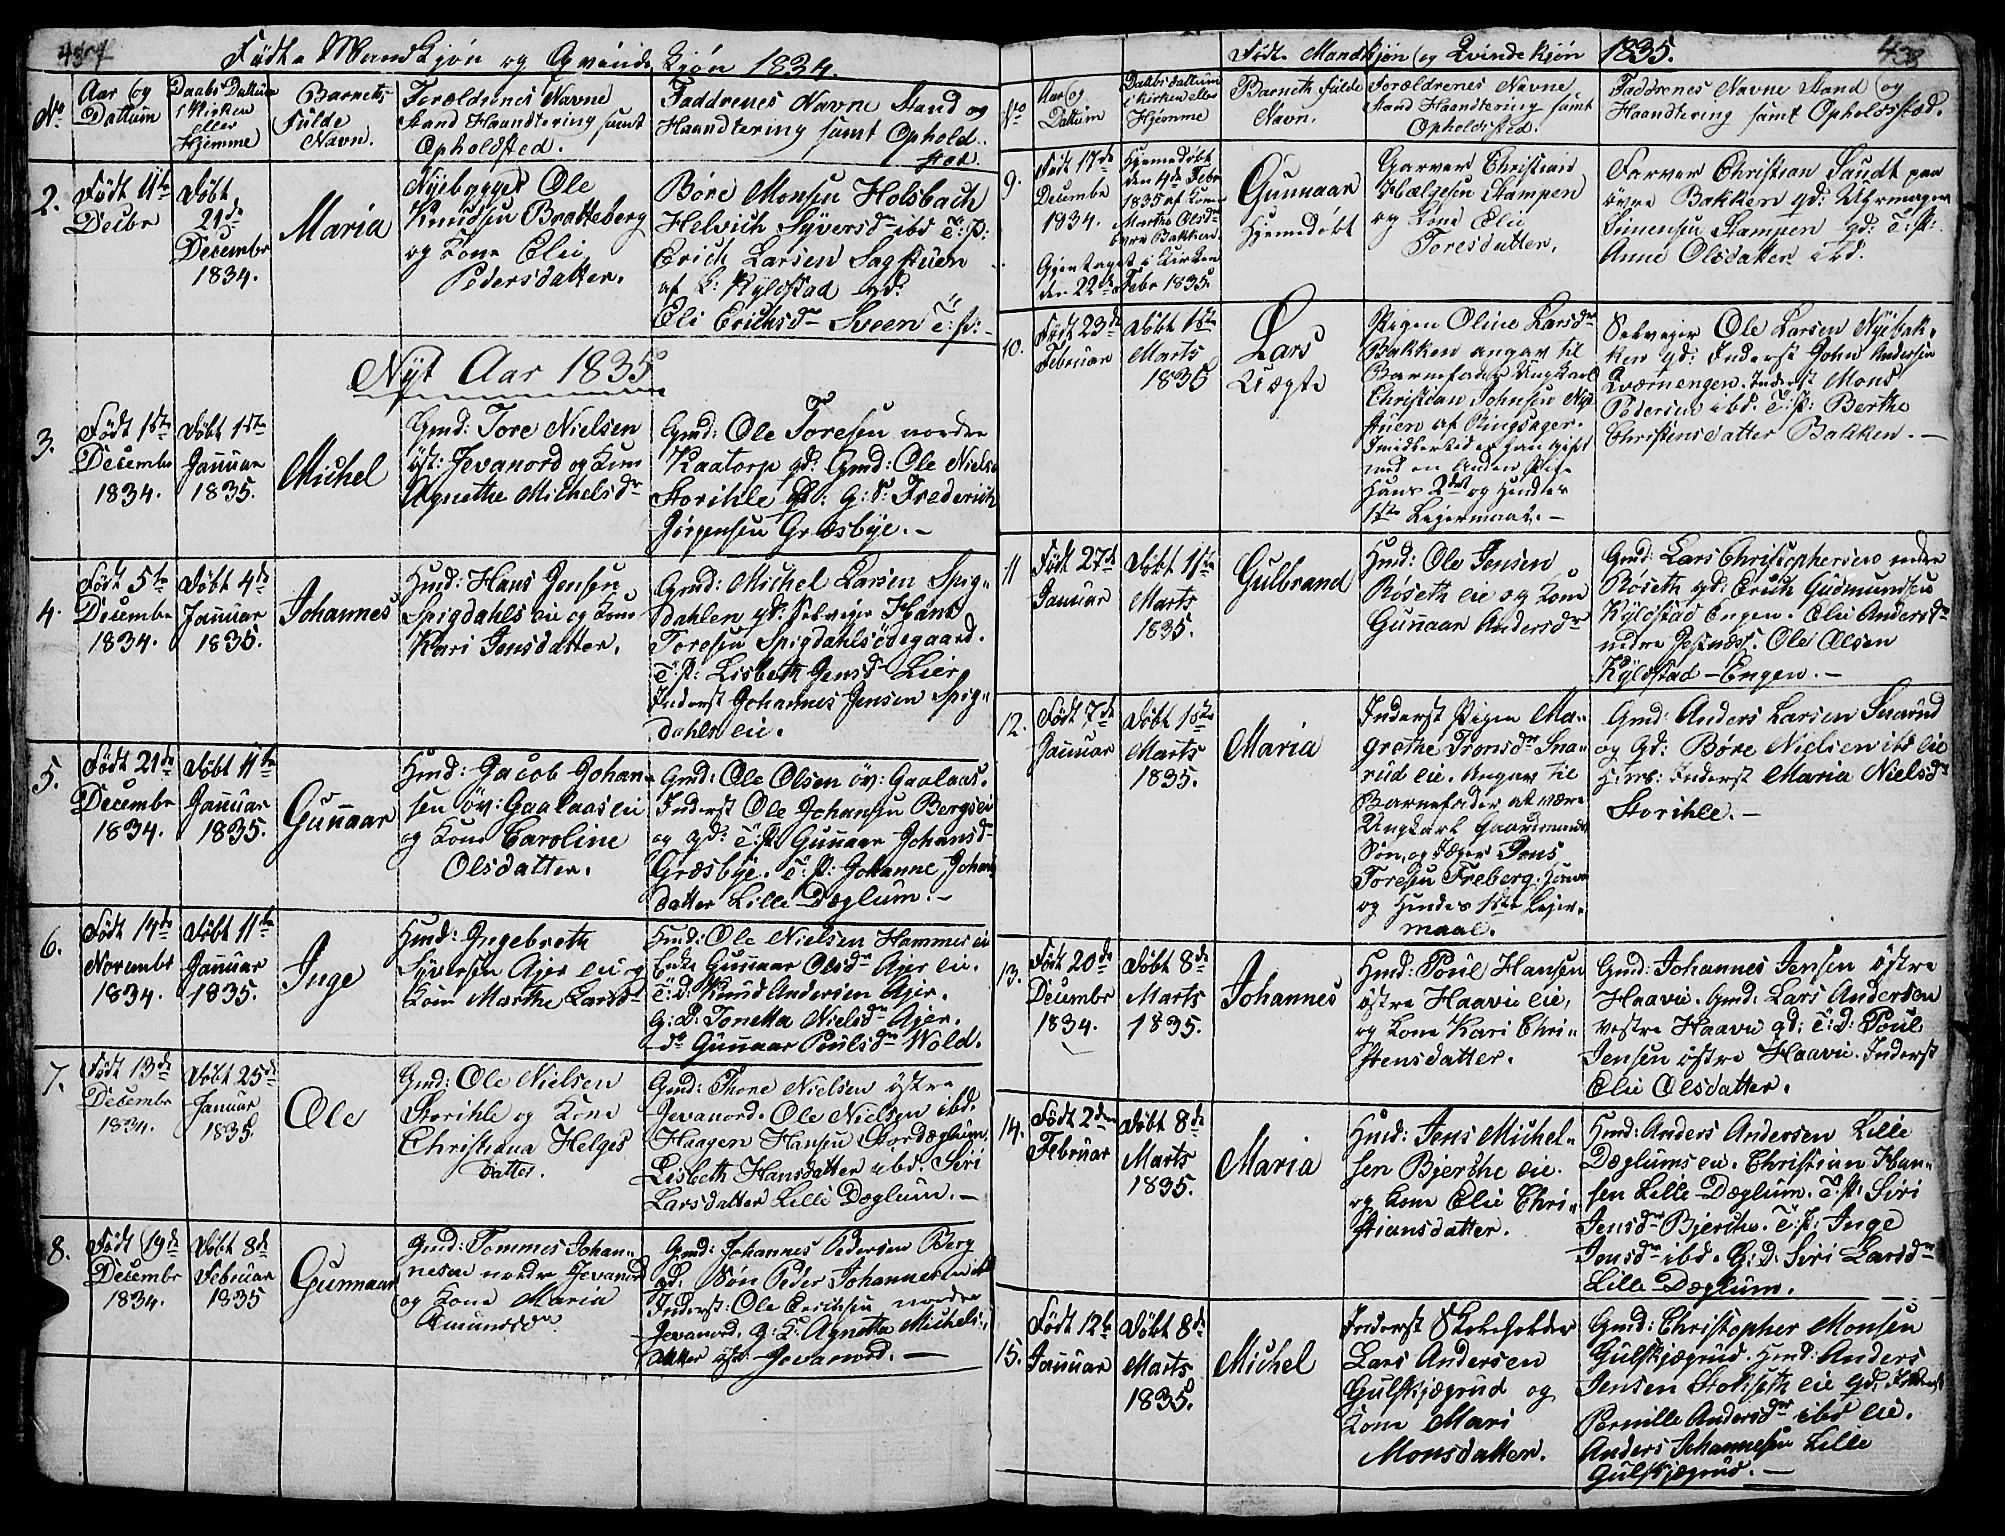 Fødte Mandkjøn og Qvindekjøn 1834.
No
Aar og
Dattum
Daabs Dattum
i Kirken
eller
Hjemme
Barnets
Fulde
Navn.
Forældrenes Navne
Stand Haandtering samt
Opholdsted.
Faddrenes Navne Stand og
Haandtering samt Ophold-
sted.
2.
Født 11te
Decbr
Døbt
21de
Decembr
1834.
Maria
Nyebygger Ole
Knudsen Bratteberg
og Kone Elie
Pedersdatter.
Børe Monsen Holsbach
Helvich Syversdr ibd T: p:
Erich Larsen Sagstuen
af L: Kyldstad gd:
Eli Erichsdr Sveen T: p: -
Nyt Aar 1835
3.
Født 1ste
Decembr
1834.
Døbt 1ste
Januar
1835.
Michel
Gmd: Tore Nielsen
øst: Jevanord og Kone
Agnethe Michelsdr
Gmd: Ole Toresen nordre
Kaatorp gd: Gmd: Ole Niels
Storihle gd: G: S: Frederich
Jørgensen Græsbye. -
4.
Født 5te
Decembr
1834.
Døbt 4de
Januar
1835.
Johannes
Hmd: Hans Jensen
Spigdahls eie og Kone
Kari Jensdatter.
Gmd: Michel Larsen Spig-
dahlen gd: Selveier Hans
Toresen Spigdahlsødegaard.
T: p: Lisbeth Jensdr Lier
Inderst Johannes Jensen Spig-
dahls eie.
5.
Født 21de
Decembr
1834.
Døbt 11te
Januar
1835.
Gunnaar
Hmd: Jacob Johan-
sen øv: Gaalaas eie
og Kone Caroline
Olsdatter.
Gmd: Ole Olsen øv: Gaalaas.
Inderst Ole Johansen Bergseie
og gd: T: p: Gunnaar Johansdr
Græsbye. T: p: Johanne Johans
datter Lille Dæglum. -
6.
Født 14de
Novembr
1834.
Døbt 11te
Januar
1835.
Inge
Hmd: Ingebreth
Syversen Ajer eie og
Kone Marthe Larsdr
Hmd: Ole Nielsen Hammer eie
Enke Gunnaar Olsdr Ajer eie.
T: D: Knud Andersen Ajer.
G: D: Tonetta Nielsdr Ajer.
do Gunnaar Poulsdr Wold.
7.
Født 13de
Decembr
1834.
Døbt 25de
Januar
1835.
Ole
Gmd: Ole Nielsen
Storihle og Kone
Christiana Helges
datter.
Gmd: Thore Nielsen østre
Jevanord. Ole Nielsen ibd.
Haagen Hansen Stordæglum.
Lisbeth Hansdatter ibd. Siri
Larsdatter Lille Dæglum. -
8.
Født 19de
Decembr
1834.
Døbt 8de
Februar
1835
Gunnaar
Gmd: Tommes Johan-
nesen nordre Jevanord
og Kone Maria
Amundsdr
Gmd: Johannes Pedersen Berg
gd: Søn Peder Johannesen ibd
Inderst: Ole Erichsen nordre
Jevanord. G: K: Agnetta Michels-
datter øst: Jevanord. -
Født Mandkjøn og Qvindekjøn 1835.
No
Aar og
Dattum
Daabs dattum
i Kirken eller
Hjemme
Barnets fulde
Navn.
Forældrenes Navne
Stand Haandtering samt
Opholdssted.
Faddrenes Navne Stand og
Haandtering samt Opholdsstad.
9.
Født 17de
Decembr
1834.
Hjemedøbt
den 4de Febr
1835 af Kone
Marthe Olsdr
øvre Bakken.
Igjentaget i Kirken
den 22de Febr 1835
Gunnaar
Hjemedøbt
Garver Christian
Helgesen Stampen
og Kone Elie
Toresdatter.
Farver Christian Sandt paa
øvre Bakken gd: Uhrmager
Simensen Stampen gd: T: p:
Anne Olsdatter ibd.
10.
Født 23de
Februar
Døbt 1ste
Marts
1835
Lars
Uægte
Pigen Oline Larsdr
Bakken angav til
Barnefader Ungkarl
Christian Johnsen Nye
stuen af Ringsager.
Imidlertid er han gift
med en Anden
Hans 2det og hendes
1ste Lejermaal. -
Selveier Ole Larsen Nyebak-
ken gd: Inderst John Andersen
Qværnengen. Inderst Mons
Pedersen ibd. T: p: Berthe
Christensdatter Bakken. -
11
Født 27de
Januar
Døbt 1ste
Marts
1835.
Gulbrand
Hmd: Ole Jensen
Røseth eie og Kone
Gunnaar Andersdr
Gmd: Lars Christophersen nedre
Røseth gd: Erich Gudmundsen
Kyldstad Engen. Elie Andersdr
nedre Jestnæss. Ole Olsen
Kyldstad-Engen. -
12.
Født 7de
Januar
Døbt 1ste
Marts
1835.
Maria
Inderst Pigen Ma-
grethe Tronsdr Sna-
rud eie. Angav til
Barnefader at være
Ungkarl Gaardmands
Søn, og Jæger Jens
Toresen Freberg.
og hendes 1ste Lejer-
maal.
Gmd: Anders Larsen Snarud
og gd: Børe Nielsen ibd eie
Inderst Maria Nielsdr
Storihle. -
13.
Født 20de
Decembr
1834.
Døbt 8de
Marts
1835.
Johannes
Hmd: Poul Hansen
østre Haavie eie,
og Kone Kari Chri-
stensdatter.
Gmd: Johannes Jensen østre
Haavie. Gmd: Lars Andersen
vestre Haavie gd: T: D: Poul
Jensen østre Haavie. Inderst
Elie Olsdatter.
14.
Født 2den
Februar
Døbt 8de
Marts
1835.
Maria
Hmd: Jens Michel-
sen Bjerche eie.
og Kone Elie Chri-
stiansdatter.
Hmd: Anders Andersen Lille
Dæglums eie. Christian Han-
sen Lille-Dæglum. T: p: Siri
Jensdr Bjerche. T: p: Inge
Jensdr ibd. G: D: Siri Larsdr
Lille Dæglum.
15.
Født 12te
Januar
Døbt 8de
Marts
1835.
Michel
Inderst Skoleholder
Lars Andersen
Gulskjægrud og
Kone Mari
Monsdatter.
Gmd: Christopher Monsen
Gulskjægrud. Hmd: Anders
Jensen Stokseth eie gd: Inderst
Pernille Andersdr ibd eie.
Anders Johannesen Lille
Gulskjægrud. -